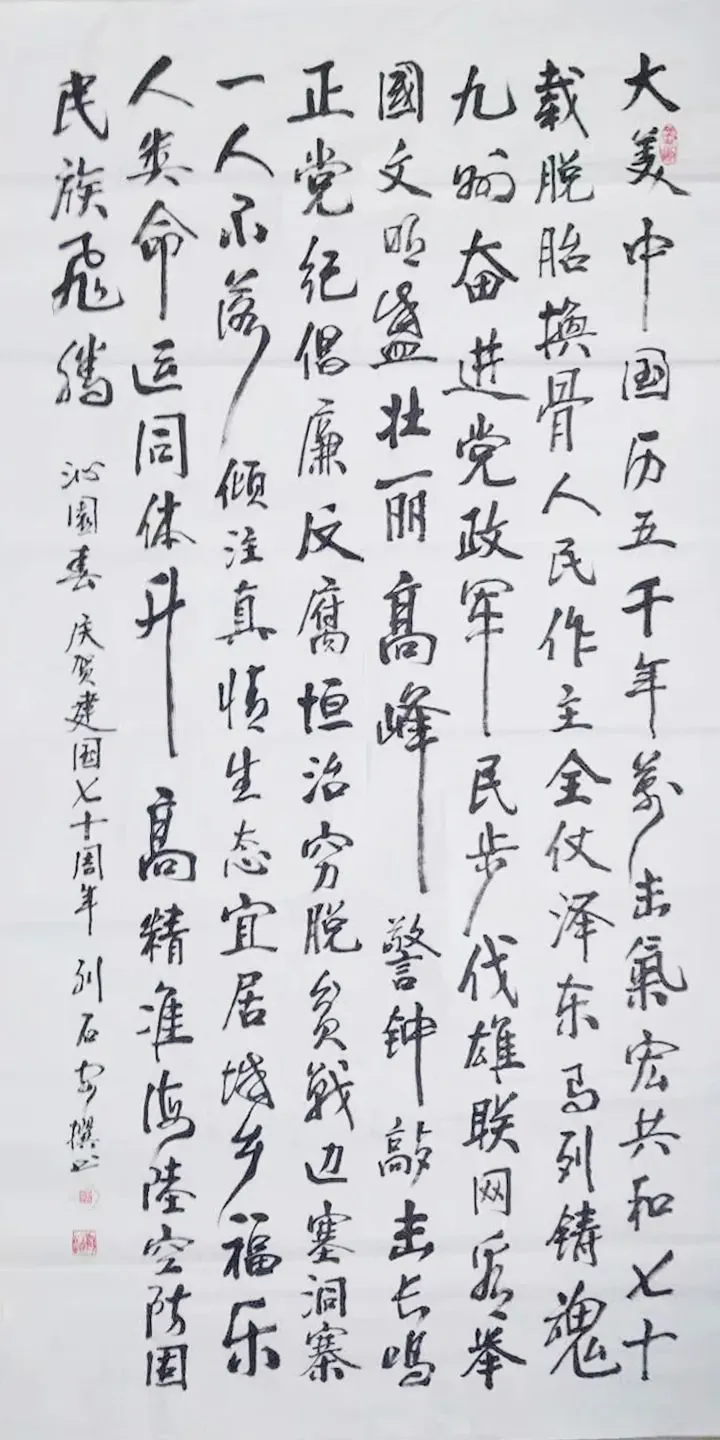 大美中国历五千年萬氣宏共和七十
载脱胎换骨人民作主全仗泽东马列铸魂
九州奋进党政军民步伐雄联网看举
國文明盛壮丽髙峰警钟敲击长鸣
正党纪倡廉反腐恒治穷脱贫战边塞洞寨
一人不落倾注真情生态宜居城乡福乐
人类命运同体升髙精准海陸空防固
民族飞腾 沁園春 庆贺建国七十周年 石撰书